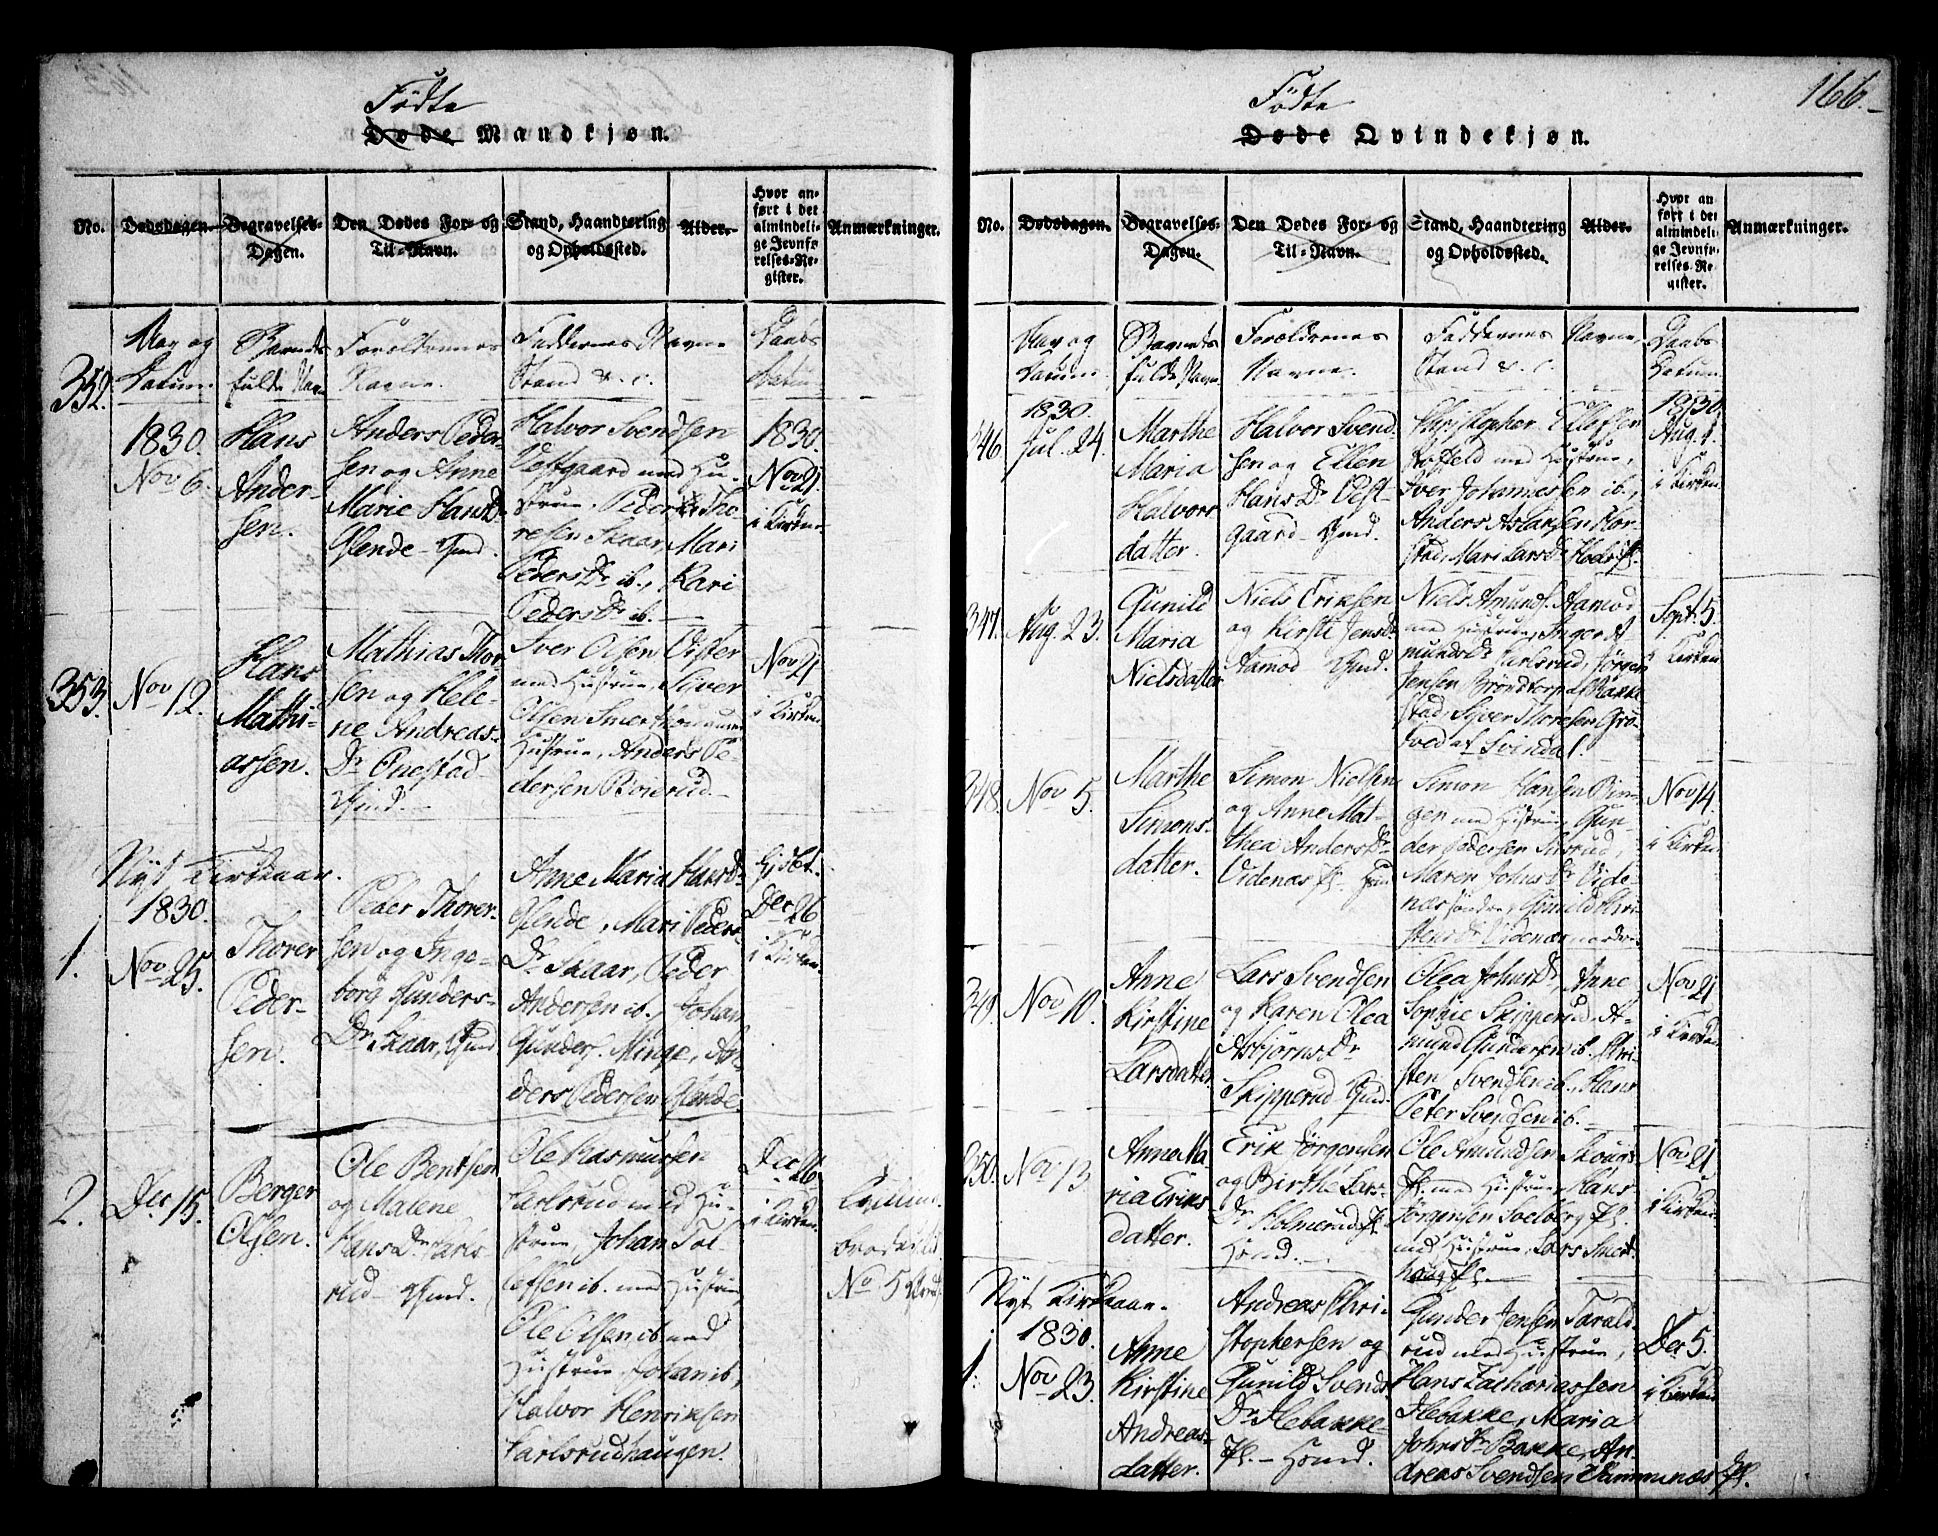 166.
Fødte
Døde Mandkjøn.
No.
Dødsdagen.
Begravelses-
Dagen.
Den Dødes For- og
Til-Navn.
Stand, Haandtering
og Opholdssted.
Alder.
Hvor an-
ført i det
almindeli-
ge Jevnfø-
relses-Re-
gister.
Anmærkninger.
Aar og
Datum
Barnets
fulde Navn
Forældrenes
Navne.
Faddernes Navne
Stand &. c.
Daabs
Datum
352.
1830.
Nov 6.
Hans
Ander-
sen.
Anders Peder-
sen og Anne
Marie Hans Dr
Glende
Halvor Svendsen
Vestgaard med Hu-
strue, Peder Tho-
resen Skaar, Mari
Peders Dr ib., Kari
Peders Dr ib.
1830
Nov 21
i Kirken
353.
Nov 12.
Hans
Mathi-
assen.
Mathias Thor-
sen og Hele-
ne Andreas-
Dr Onestad
Iver Olsen Vister
med Hustrue, Siver
Olsen Smerthou
Hustrue, Anders Pe-
dersen Boierud
Nov 21
i Kirken
Nyt Kirkeaar.
1830.
1.
Nov 25.
Thorer
Peder-
sen.
Peder Thorer-
sen og Inge-
borg Gunders-
Dr Skaar
Anne Maria Hans Dr
Glende, Mari Peders-
Dr Skaar, Peder
Andersen ib., Johan
Gunders. Minge, An-
ders Pedersen Glende
Hjdbt.
Dec 26
i Kirken
2.
Dec 15.
Berger
Olsen.
Ole Bentsen
og Malene
Hans Dr Karls-
rud
Ole Rasmussen
Karlsrud med Hu-
strue, Johan Tol-
lefsen ib. med Hustrue
Ole Olsen ib. med
Hustrue, Johan ib,
Halvor Henriksen
Karlsrudhaugen.
Dec 26
i Kirken.
No 5
Fødte
Døde Qvindekjøn.
No.
Dødsdagen.
Begravelses-
Dagen.
Den Dødes For- og
Til-Navn.
Stand, Haandtering
og Opholdssted.
Alder.
Hvor an-
ført i det
almindeli-
ge Jevnfø-
relses-Re-
gister.
Anmærkninger.
Aar og
Datum.
Barnets
fulde Navn
Forældrenes
Navne.
Faddernes Navne,
Stand &. c.
Daabs
Datum
346
1830.
Jul. 24.
Marthe
Maria
Halvors
datter.
Halvor Svend-
sen og Ellen
Hans Dr Vest-
gaard
Christopher Ellefsen
med Hustrue,
Iver Johannessen ib.,
Anders Aslaksen Hor-
stad, Mari Lars Dr
1830
Aug 1.
i Kirken
347.
Aug. 23.
Gunild
Maria
Nielsdatter
Niels Eriksen
og Kirsti Jens Dr
Aamod
Niels Amunds. Aamod
med Hustrue, Inger A
munds Dr Karlsrud, Jørgen
Jensen Brøndtorp af Rakke
stad, Siver Thoresen Gra-
tved af Svindal.
Sept 5
i Kirken
348.
Nov 5.
Marthe
Simons-
datter.
Simon Nielsen
og Anne Mat-
thea Anders Dr
Videnæs
Simon Hansen Bin-
gen med Hustrue, Gun-
der Pedersen
Maren Johns Dr Vide-
næs søndre, Gunild Chri-
stens Dr Videnæs nordre
Nov 14.
i Kirken
349.
Nov 10.
Anne
Kirstine
Larsdatter
Lars Svendsen
og Karen Olea
Asbjørns Dr
Skipperud
Olea Johns Dr, Anne
Sophie Skipperud, A-
mund Gundersen ib. Chri-
sten Svendsen ib., Hans
Peter Svendsen ib.
Nov 21
i Kirken
350.
Nov 13
Anne Ma-
ria Eriks
datter.
Erik Jørgensen
og Birthe Lars-
Dr Holmerud
Ole Amundsen Skougs
Pl. med Hustrue, Hans
Jørgensen Solberg Pl.
med Hustrue, Lars Smert-
houg Pl.
Nov 21
i Kirken
Nyt Kirkeaar.
1830.
1.
Nov 23.
Anne
Kirstine
Andreas-
datter.
Andreas Chri-
stophersen og
Gunild Svends
Dr Hebakke-
Pl.
Gunder Jensen Tarald-
rud med Hustrue,
Hans Zachariassen
Hebakke, Maria
Johns Dr Bakke, An
dreas Svendsen Pl.
Dec 5.
i Kirken